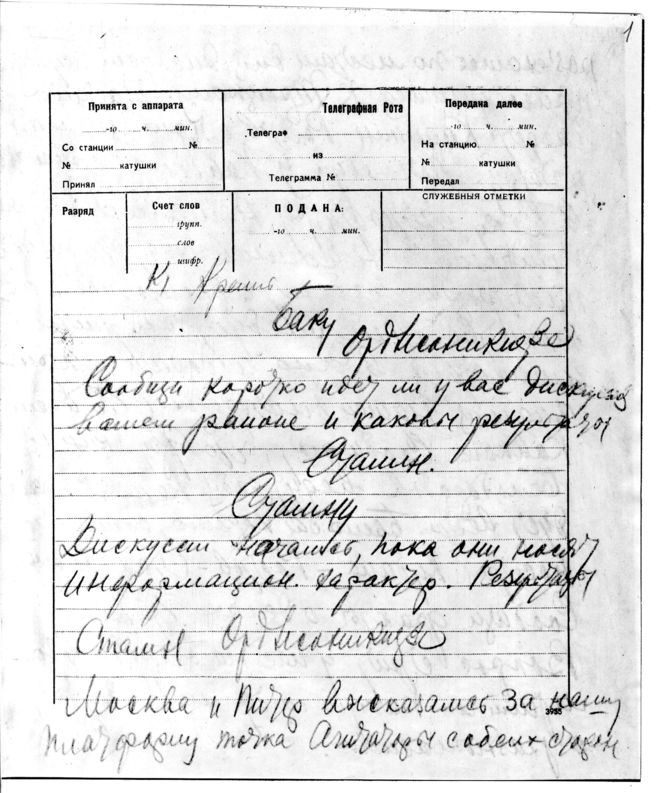 1
Принята с аппарата
-го ч. мин.
Со станции №
№ катушки
Принял
Телеграфная Рота
Телеграф
из
Телеграмма №
Передана далее
-го ч. мин.
На станцию №
№ катушки
Передал
Разряд
Счет слов
групп.
слов
шифр.
ПОДАНА:
-го ч. мин.
СЛУЖЕБНЫЯ ОТМЕТКИ
Баку
Орджоникидзе
Сообщи коротко идет ли у вас
вашем районе и каковы результаты
Сталин.
Сталину
Дискуссии начались, пока они носят
информацион. характер. Результаты
Сталин Орджоникидзе
Москва и Питер высказались за нашу
3955
платформу точка Агитаторы с обеих сторон